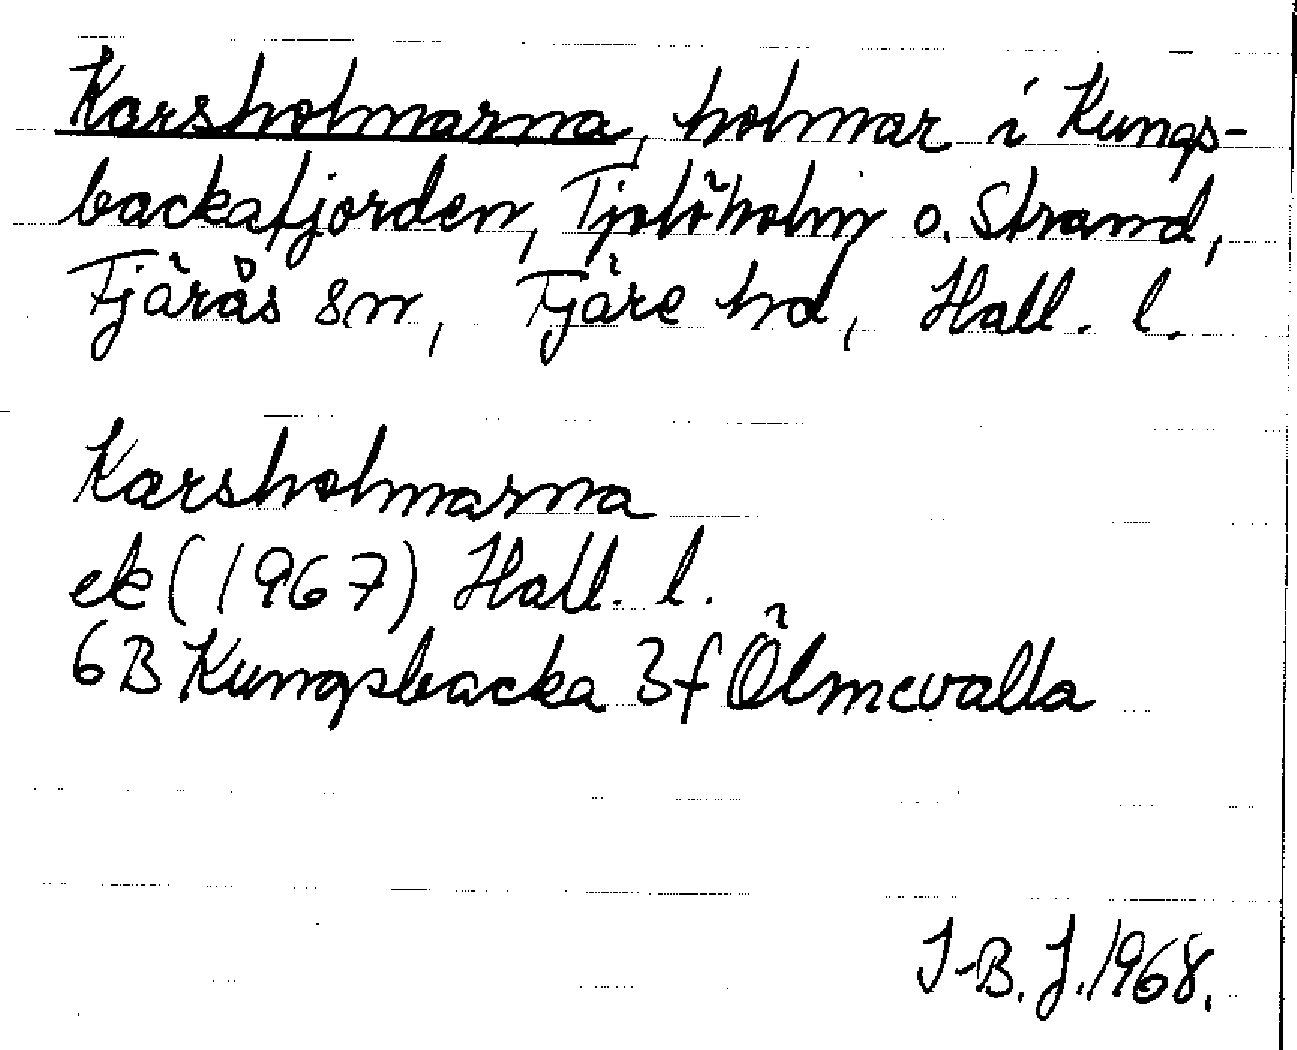 Karsholmarna, holmar i Kungs-
backafjorden, Tjolöholm o. Strand,
Fjärås sn, Fjäre hd, Hall. l.
Karsholmarna
ek (1967) Hall. l.
6B Kungsbacka 3f Ölmevalla
I-B. J. 1968.